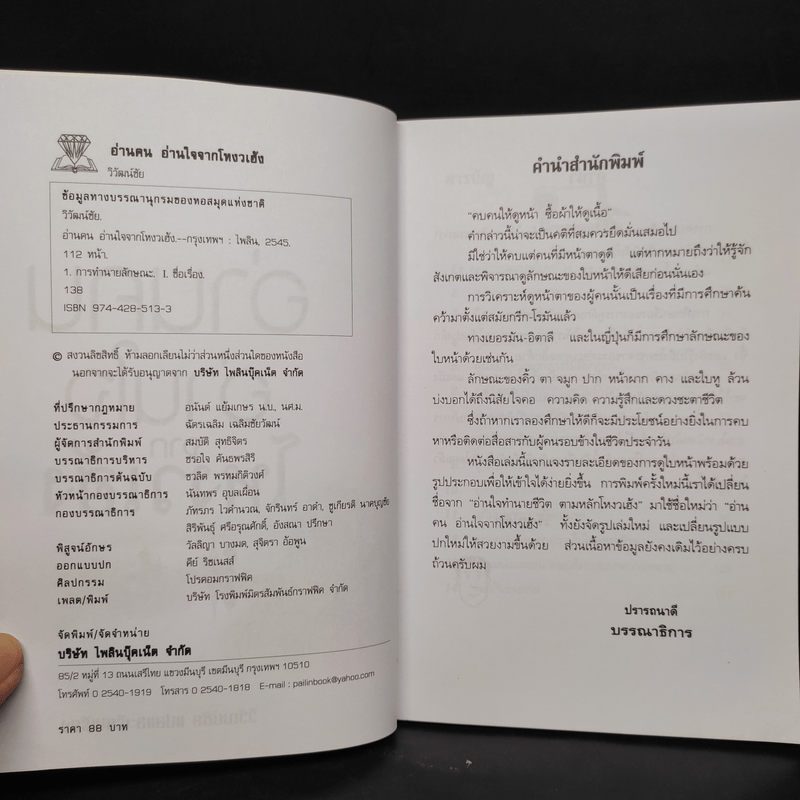 อ่านคน อ่านใจจากโหงวเฮ้ง
วิวัฒน์ชัย
ข้อมูลทางบรรณานุกรมของหอสมุดแห่งชาติ
วิวัฒน์ชัย.
อ่านคน อ่านใจจากโหงวเฮ้ง.--กรุงเทพฯ : ไพลิน, 2545.
112 หน้า.
1. การทำนายลักษณะ. I. ชื่อเรื่อง.
138
ISBN 974-428-513-3
© สงวนลิขสิทธิ์ ห้ามลอกเลียนไม่ว่าส่วนหนึ่งส่วนใดของหนังสือ
นอกจากจะได้รับอนุญาตจาก บริษัท ไพลินบุ๊คเน็ต จำกัด
ที่ปรึกษากฎหมาย อนันต์ แย้มเกษร น.บ., นศ.ม.
ประธานกรรมการ ฉัตรเฉลิม เฉลิมชัยวัฒน์
ผู้จัดการสำนักพิมพ์ สมบัติ สุทธิจิตร
บรรณาธิการบริหาร ชรอใจ คันธพรสิรี
บรรณาธิการต้นฉบับ ชวลิต พรหมกิติวงศ์
หัวหน้ากองบรรณาธิการ นันทพร อุบลเผื่อน
กองบรรณาธิการ ภัทรภร ไวคำนวณ, จักรินทร์ อาดำ, ชูเกียรติ นาคบุญชัย
สิริพันธุ์ ศรีอรุณศักดิ์, อังสณา ปรึกษา
พิสูจน์อักษร วัลลิญา บางมด, สุจิตรา อ้อพูน
ออกแบบปก คีย์ ริชเนสส์
ศิลปกรรม โปรคอมกราฟฟิค
เพลต/พิมพ์ บริษัท โรงพิมพ์มิตรสัมพันธ์กราฟฟิค จำกัด
จัดพิมพ์/จัดจำหน่าย
บริษัท ไพลินบุ๊คเน็ต จำกัด
85/2 หมู่ที่ 13 ถนนเสรีไทย แขวงมีนบุรี เขตมีนบุรี กรุงเทพฯ 10510
โทรศัพท์ 0 2540-1919 โทรสาร 0 2540-1818 E-mail : pailinbook@yahoo.com
ราคา 88 บาท
คำนำสำนักพิมพ์
"คบคนให้ดูหน้า ซื้อผ้าให้ดูเนื้อ"
คำกล่าวนี้น่าจะเป็นคติที่สมควรยึดมั่นเสมอไป
มิใช่ว่าให้คบแต่คนที่มีหน้าตาดูดี แต่หากหมายถึงว่าให้รู้จัก
สังเกตและพิจารณาดูลักษณะของใบหน้าให้ดีเสียก่อนนั่นเอง
การวิเคราะห์ดูหน้าตาของผู้คนนั้นเป็นเรื่องที่มีการศึกษาค้น
คว้ามาตั้งแต่สมัยกรีก-โรมันแล้ว
ทางเยอรมัน-อิตาลี และในญี่ปุ่นก็มีการศึกษาลักษณะของ
ใบหน้าด้วยเช่นกัน
ลักษณะของคิ้ว ตา จมูก ปาก หน้าผาก คาง และใบหู ล้วน
บ่งบอกได้ถึงนิสัยใจคอ ความคิด ความรู้สึกและดวงชะตาชีวิต
ซึ่งถ้าหากเราลองศึกษาให้ดีก็จะมีประโยชน์อย่างยิ่งในการคบ
หาหรือติดต่อสื่อสารกับผู้คนรอบข้างในชีวิตประจำวัน
หนังสือเล่มนี้แจกแจงรายละเอียดของการดูใบหน้าพร้อมด้วย
รูปประกอบเพื่อให้เข้าใจได้ง่ายยิ่งขึ้น การพิมพ์ครั้งใหม่นี้เราได้เปลี่ยน
ชื่อจาก "อ่านใจทำนายชีวิต ตามหลักโหงวเฮ้ง" มาใช้ชื่อใหม่ว่า "อ่าน
คน อ่านใจจากโหงวเฮ้ง" ทั้งยังจัดรูปเล่มใหม่ และเปลี่ยนรูปแบบ
ปกใหม่ให้สวยงามขึ้นด้วย ส่วนเนื้อหาข้อมูลยังคงเดิมไว้อย่างครบ
ถ้วนครับผม
ปรารถนาดี
บรรณาธิการ